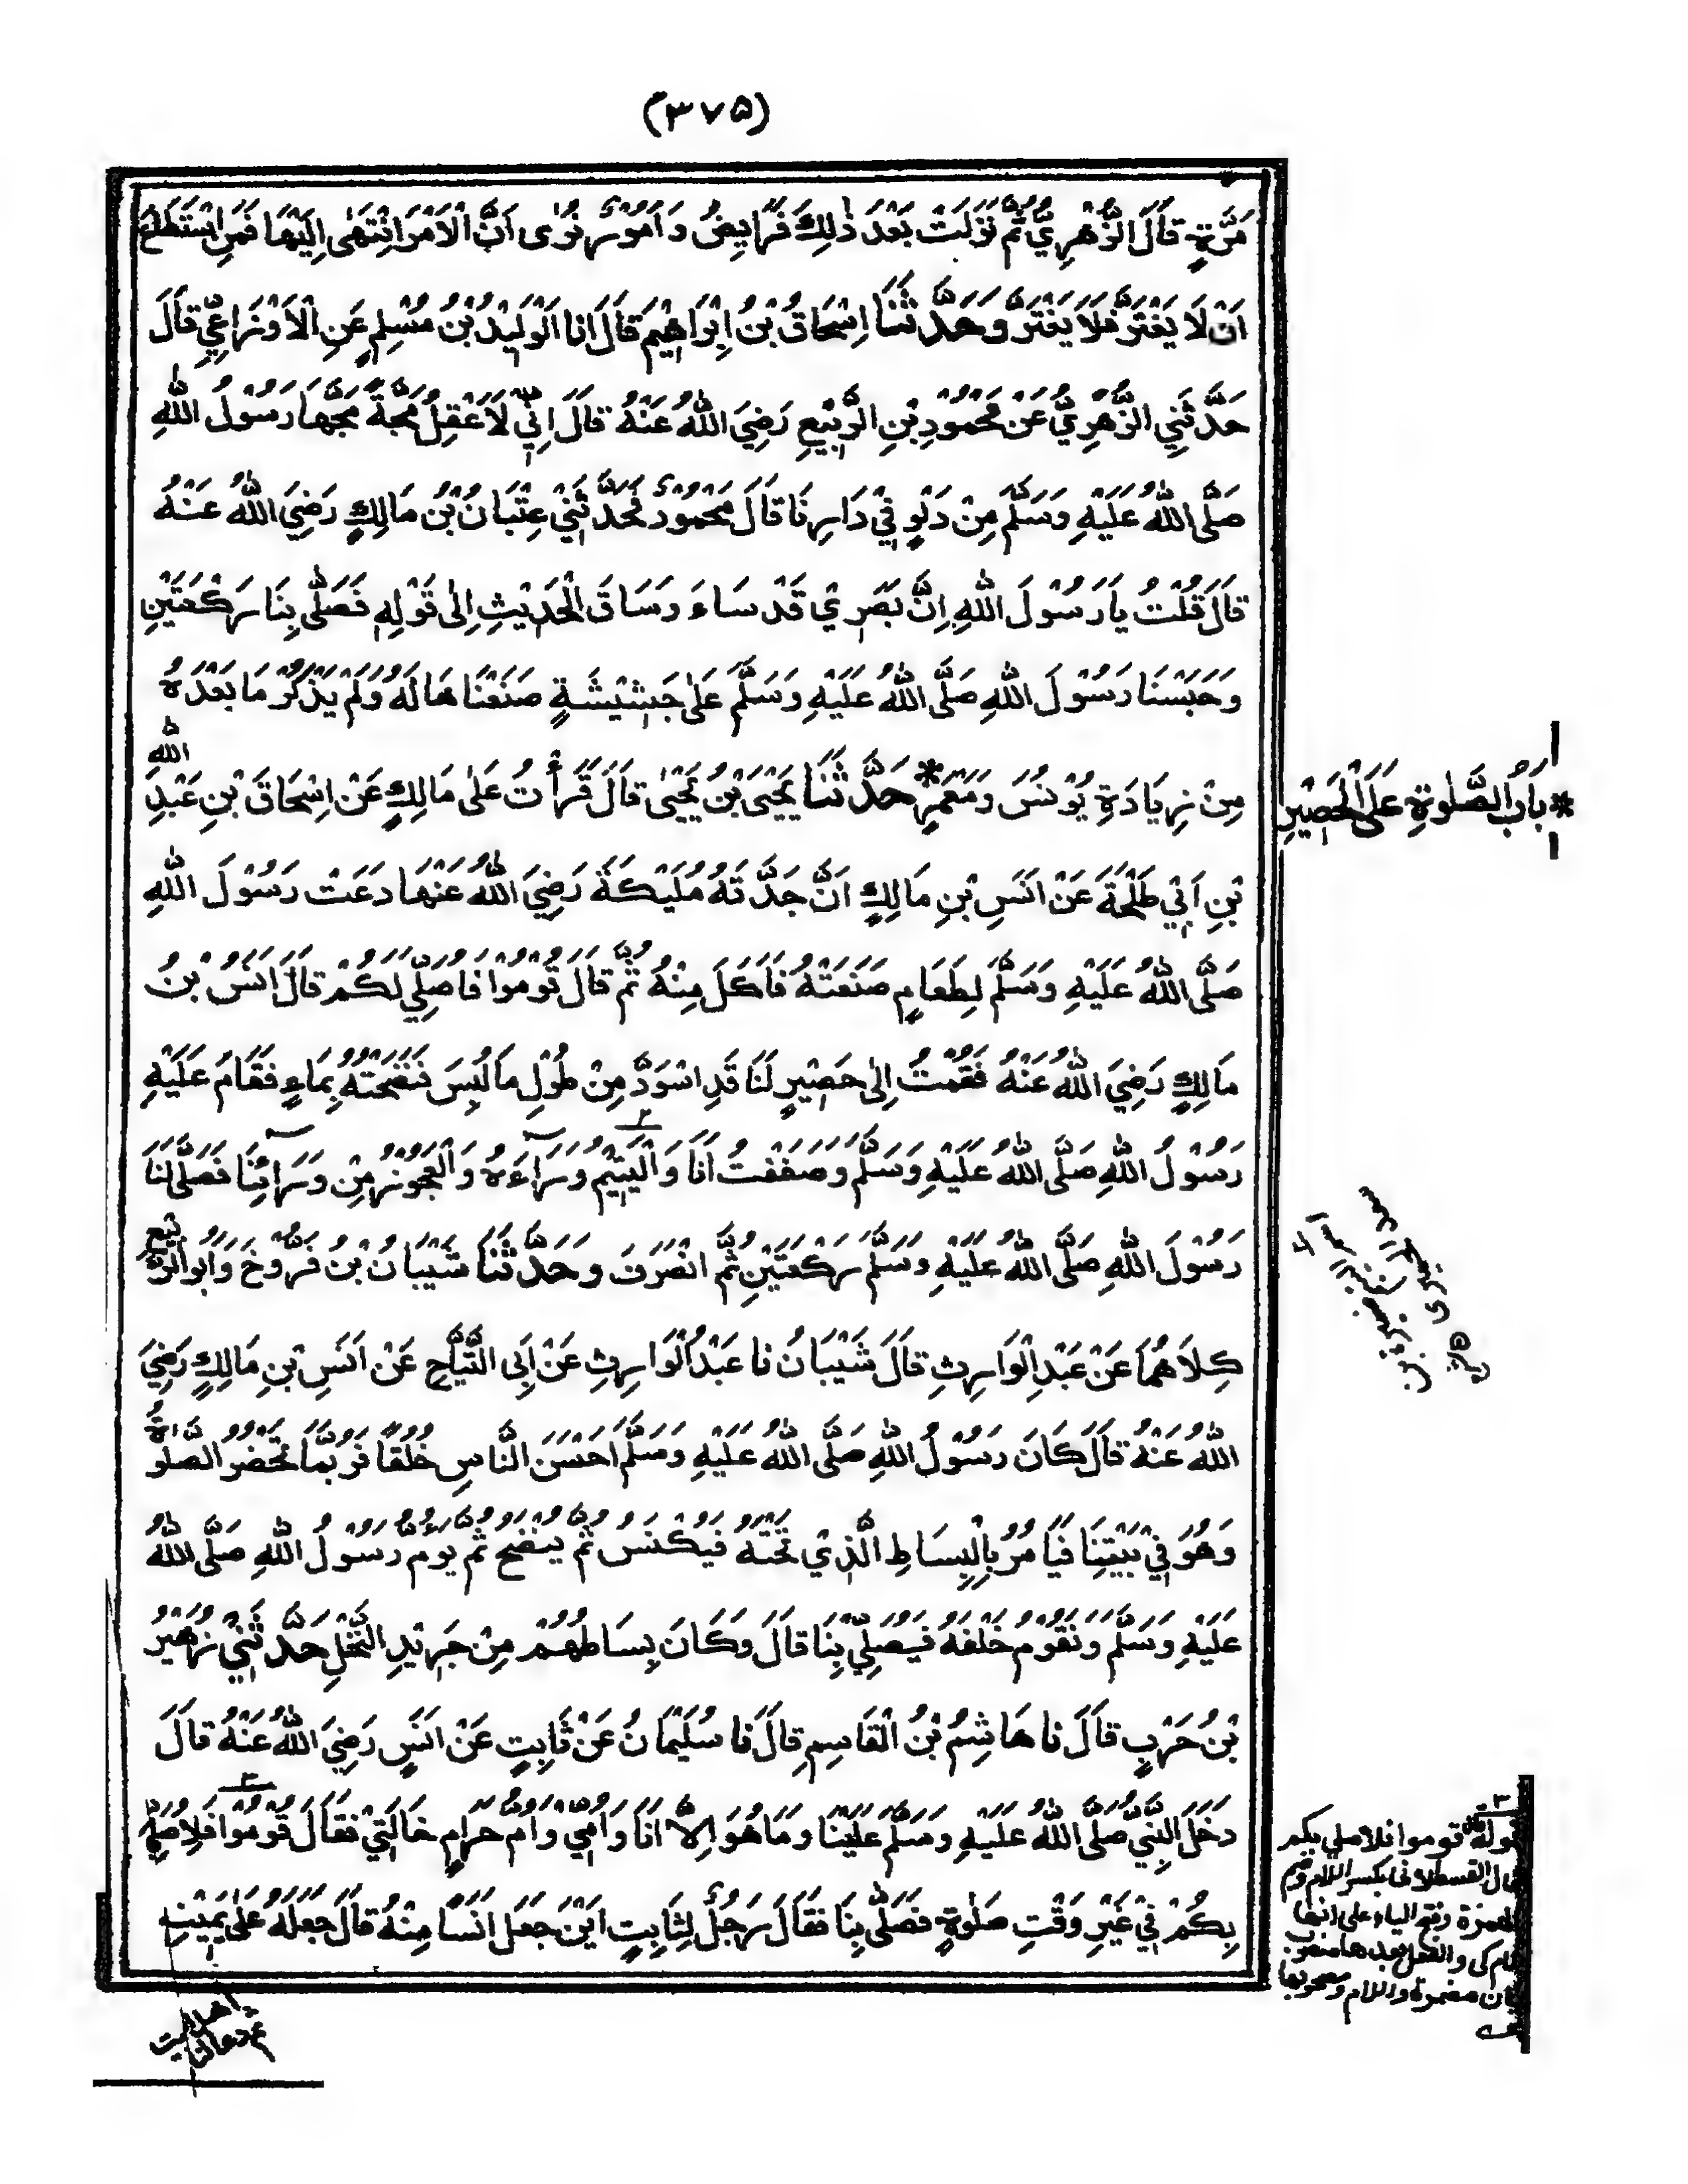 (٣٧٥)
مَرَّةٍ قَالَ الزُّهْرِيُّ ثُمَّ نَزَلَتْ بَعْدَ ذٰلِكَ فَرَايِضُ وَاُمُوْرٌ نَرٰى اَنَّ الْاَمْرَ انْتَهٰى اِلَيْهَا فَمَنِ اسْتَطَاعَ
اَنْ لَا يَغْتَرَّ فَلَا يَغْتَرَّ وَحَدَّثَنَا اِسْحَاقُ بْنُ اِبْرَاهِيْمَ قَالَ اَنَا الْوَلِيْدُ بْنُ مُسْلِمٍ عَنِ الْاَوْزَاعِيِّ قَالَ
حَدَّثَنِي الزُّهْرِيُّ عَنْ مَحْمُوْدِ بْنِ الرَّبِيْعِ رَضِيَ اللّٰهُ عَنْهُ قَالَ اِنِّيْ لَاَعْقِلُ مَجَّةً مَجَّهَا رَسُوْلُ اللّٰهِ
صَلَّى اللّٰهُ عَلَيْهِ وَسَلَّمَ مِنْ دَلْوٍ فِيْ دَارِنَا قَالَ مَحْمُوْدٌ فَحَدَّثَنِيْ عِتْبَانُ بْنُ مَالِكٍ رَضِيَ اللّٰهُ عَنْهُ
قَالَ قُلْتُ يَا رَسُوْلَ اللّٰهِ اِنَّ بَصَرِيْ قَدْ سَاءَ وَسَاقَ الْحَدِيْثِ اِلٰى قَوْلِهٖ فَصَلّٰى بِنَا رَكْعَتَيْنِ
وَحَبَسْنَا رَسُوْلَ اللّٰهِ صَلَّى اللّٰهُ عَلَيْهِ وَسَلَّمَ عَلٰى جَشِيْشَةٍ صَنَعْنَاهَا لَهُ وَلَمْ يَذْكُرْ مَا بَعْدَهُ
مِنْ زِيَادَةِ يُوْنُسَ وَمَعْمَرٍ * حَدَّثَنَا يَحْيَى بْنُ يَحْيٰى قَالَ قَرَأْتُ عَلٰى مَالِكٍ عَنْ اِسْحَاقَ بْنِ عَبْدِ اللّٰه
* بَابُ الصَّلٰوةِ عَلَى الْحَصِيْرِ
بْنِ اَبِيْ طَلْحَةَ عَنْ اَنَسِ بْنِ مَالِكٍ اَنَّ جَدَّتَهُ مُلَيْكَةَ رَضِيَ اللّٰهُ عَنْهَا دَعَتْ رَسُوْلَ اللّٰهِ
صَلَّى اللّٰهُ عَلَيْهِ وَسَلَّمَ لِطَعَامٍ صَنَعَتْهُ فَاَكَلَ مِنْهُ ثُمَّ قَالَ قُوْمُوْا فَاُصَلِّيَ لَكُمْ قَالَ اَنَسُ بْنُ
مَالِكٍ رَضِيَ اللّٰهُ عَنْهُ فَقُمْتُ اِلٰى حَصِيْرٍ لَنَا قَدِ اسْوَدَّ مِنْ طُوْلِ مَا لُبِسَ فَنَضَحْتُهُ بِمَاءٍ فَقَامَ عَلَيْهِ
رَسُوْلُ اللّٰهِ صَلَّى اللّٰهُ عَلَيْهِ وَسَلَّمَ وَصَفَفْتُ اَنَا وَالْيَتِيْمُ وَرَاءَهُ وَالْعَجُوْزُ مِنْ وَرَائِنَا فَصَلّٰى لَنَا
رَسُوْلَ اللّٰهِ صَلَّى اللّٰهُ عَلَيْهِ وَسَلَّمَ رَكْعَتَيْنِ ثُمَّ انْصَرَفَ وَحَدَّثَنَا شَيْبَانُ بْنُ فَرُّوْخَ وَاَبُو الرَّبِيْعِ
كِلَاهُمَا عَنْ عَبْدِ الْوَارِثِ قَالَ شَيْبَانُ نَا عَبْدُ الْوَارِثِ عَنْ اَبِى التَّيَّاحِ عَنْ اَنَسِ بْنِ مَالِكٍ رَضِيَ
اللّٰهُ عَنْهُ قَالَ كَانَ رَسُوْلُ اللّٰهِ صَلَّى اللّٰهُ عَلَيْهِ وَسَلَّمَ اَحْسَنَ النَّاسِ خُلُقًا فَرُبَّمَا تَحْضُرُ الصَّلٰوةُ
وَهُوَ فِيْ بَيْتِنَا فَيَاْمُرُ بِالْبِسَاطِ الَّذِيْ تَحْتَهُ فَيُكْنَسُ ثُمَّ يُنْضَحُ ثُمَّ يَؤُمُّ رَسُوْلُ اللّٰهِ صَلَّى اللّٰهُ
عَلَيْهِ وَسَلَّمَ وَنَقُوْمُ خَلْفَهُ فَيُصَلِّيْ بِنَا قَالَ وَكَانَ بِسَاطُهُمْ مِنْ جَرِيْدِ النَّخْلِ حَدَّثَنِيْ زُهَيْرُ
بْنُ حَرْبٍ قَالَ نَا هَاشِمُ بْنُ الْقَاسِمِ قَالَ نَا سُلَيْمَانُ عَنْ ثَابِتٍ عَنْ اَنَسٍ رَضِيَ اللّٰهُ عَنْهُ قَالَ
دَخَلَ النَّبِيُّ صَلَّى اللّٰهُ عَلَيْهِ وَسَلَّمَ عَلَيْنَا وَمَا هُوَ اِلَّا اَنَا وَاُمِّيْ وَاُمُّ حَرَامٍ خَالَتِيْ فَقَالَ قُوْمُوْا فَلِاُصَلِّيَ
بِكُمْ فِيْ غَيْرِ وَقْتِ صَلٰوةٍ فَصَلّٰى بِنَا فَقَالَ رَجُلٌ لِثَابِتٍ اَيْنَ جَعَلَ اَنَسًا مِنْهُ قَالَ جَعَلَهُ عَلٰى يَمِيْنِهِ
٣
قوله قوموا فلاصلي بكم
قال القسطلانى بكسر اللام وضم
الهمزة وفتح الياء على انها
لام كى والفعل بعدها منصوب
بان مضمرة واللام ومصحوبها